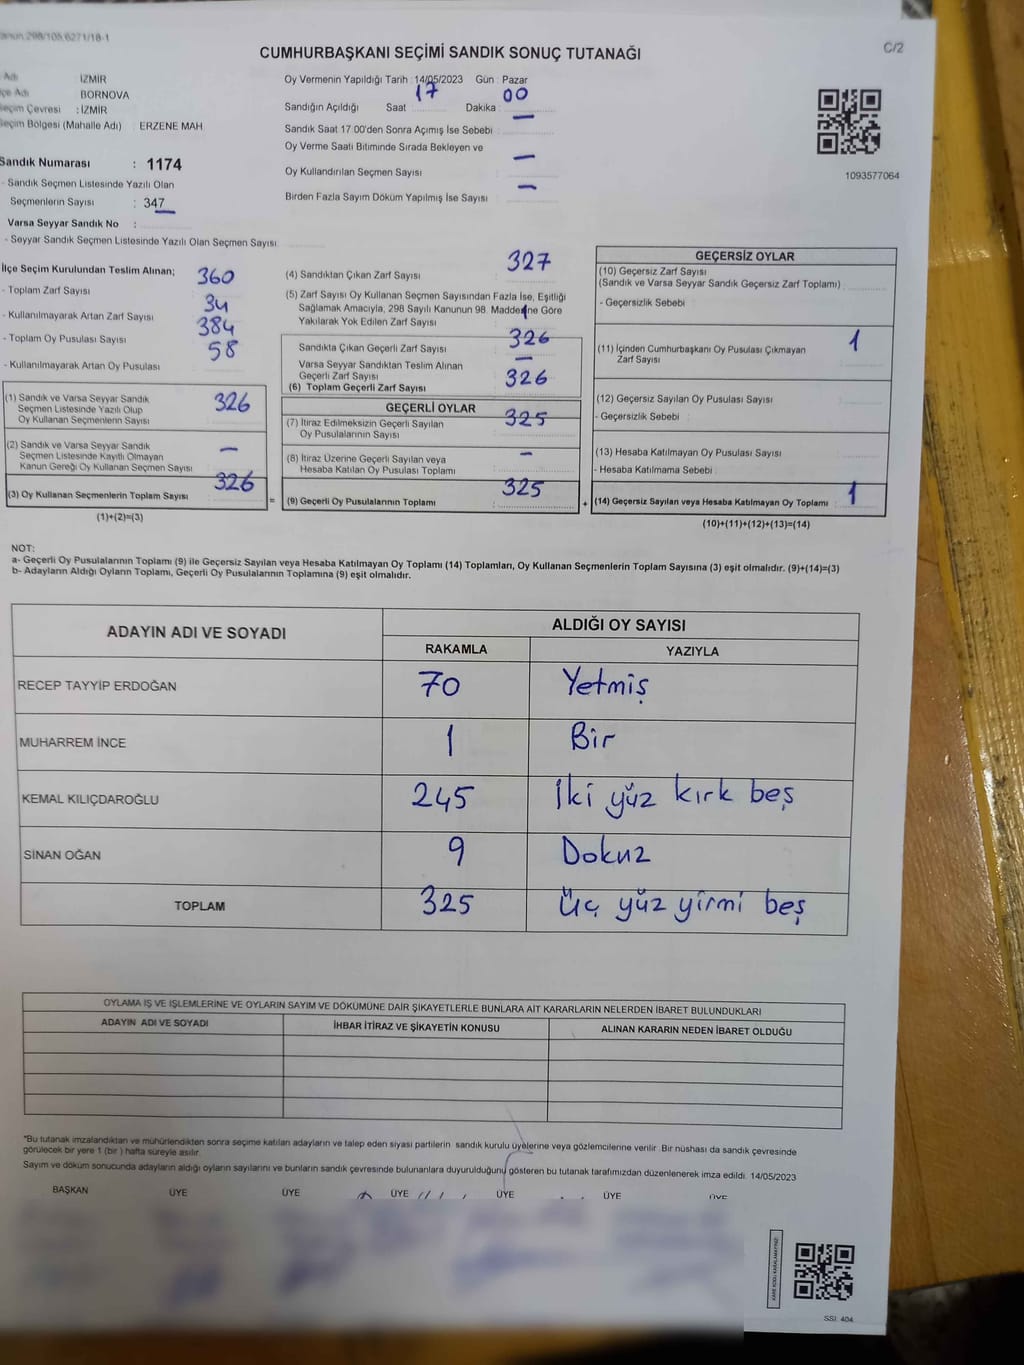 CUMHURBAŞKANI SEÇİMİ SANDIK SONUÇ TUTANAĞI
C/2
Adı İZMİR
Adı BORNOVA
Seçim Çevresi : İZMİR
Seçim Bölgesi (Mahalle Adı) : ERZENE MAH
Sandık Numarası : 1174
- Sandık Seçmen Listesinde Yazılı Olan
Seçmenlerin Sayısı : 347
Varsa Seyyar Sandık No :
- Seyyar Sandık Seçmen Listesinde Yazılı Olan Seçmen Sayısı
Oy Vermenin Yapıldığı Tarih : 14/05/2023 Gün : Pazar
Sandığın Açıldığı Saat : 17 Dakika : 00
Sandık Saat 17:00'den Sonra Açımış İse Sebebi : —
Oy Verme Saati Bitiminde Sırada Bekleyen ve
Oy Kullandırılan Seçmen Sayısı : —
Birden Fazla Sayım Döküm Yapılmış İse Sayısı : —
1093577064
İlçe Seçim Kurulundan Teslim Alınan;
- Toplam Zarf Sayısı 360
- Kullanılmayarak Artan Zarf Sayısı 34
- Toplam Oy Pusulası Sayısı 384
- Kullanılmayarak Artan Oy Pusulası 58
(1) Sandık ve Varsa Seyyar Sandık
Seçmen Listesinde Yazılı Olup
Oy Kullanan Seçmenlerin Sayısı 326
(2) Sandık ve Varsa Seyyar Sandık
Seçmen Listesinde Kayıtlı Olmayan
Kanun Gereği Oy Kullanan Seçmen Sayısı —
(3) Oy Kullanan Seçmenlerin Toplam Sayısı 326
(1)+(2)=(3)
(4) Sandıktan Çıkan Zarf Sayısı : 327
(5) Zarf Sayısı Oy Kullanan Seçmen Sayısından Fazla İse, Eşitliği
Sağlamak Amacıyla, 298 Sayılı Kanunun 98. Maddesine Göre
Yakılarak Yok Edilen Zarf Sayısı : 1
Sandıkta Çıkan Geçerli Zarf Sayısı : 326
Varsa Seyyar Sandıktan Teslim Alınan
Geçerli Zarf Sayısı —
(6) Toplam Geçerli Zarf Sayısı 326
GEÇERLİ OYLAR
(7) İtiraz Edilmeksizin Geçerli Sayılan
Oy Pusulalarının Sayısı : 325
(8) İtiraz Üzerine Geçerli Sayılan veya
Hesaba Katılan Oy Pusulası Toplamı : —
= (9) Geçerli Oy Pusulalarının Toplamı : 325
GEÇERSİZ OYLAR
(10) Geçersiz Zarf Sayısı
(Sandık ve Varsa Seyyar Sandık Geçersiz Zarf Toplamı) :
- Geçersizlik Sebebi :
(11) İçinden Cumhurbaşkanı Oy Pusulası Çıkmayan
Zarf Sayısı : 1
(12) Geçersiz Sayılan Oy Pusulası Sayısı :
- Geçersizlik Sebebi :
(13) Hesaba Katılmayan Oy Pusulası Sayısı :
- Hesaba Katılmama Sebebi :
+ (14) Geçersiz Sayılan veya Hesaba Katılmayan Oy Toplamı : 1
(10)+(11)+(12)+(13)=(14)
NOT:
a- Geçerli Oy Pusulalarının Toplamı (9) ile Geçersiz Sayılan veya Hesaba Katılmayan Oy Toplamı (14) Toplamları, Oy Kullanan Seçmenlerin Toplam Sayısına (3) eşit olmalıdır. (9)+(14)=(3)
b- Adayların Aldığı Oyların Toplamı, Geçerli Oy Pusulalarının Toplamına (9) eşit olmalıdır.
ADAYIN ADI VE SOYADI ALDIĞI OY SAYISI
RAKAMLA YAZIYLA
RECEP TAYYİP ERDOĞAN 70 Yetmiş
MUHARREM İNCE 1 Bir
KEMAL KILIÇDAROĞLU 245 İki yüz kırk beş
SİNAN OĞAN 9 Dokuz
TOPLAM 325 Üç yüz yirmi beş
OYLAMA İŞ VE İŞLEMLERİNE VE OYLARIN SAYIM VE DÖKÜMÜNE DAİR ŞİKAYETLERLE BUNLARA AİT KARARLARIN NELERDEN İBARET BULUNDUKLARI
ADAYIN ADI VE SOYADI İHBAR İTİRAZ VE ŞİKAYETİN KONUSU ALINAN KARARIN NEDEN İBARET OLDUĞU
*Bu tutanak imzalandıktan ve mühürlendikten sonra seçime katılan adayların ve talep eden siyasi partilerin sandık kurulu üyelerine veya gözlemcilerine verilir. Bir nüshası da sandık çevresinde
görülecek bir yere 1 (bir) hafta süreyle asılır.
Sayım ve döküm sonucunda adayların aldığı oyların sayılarını ve bunların sandık çevresinde bulunanlara duyurulduğunu gösteren bu tutanak tarafımızdan düzenlenerek imza edildi. 14/05/2023
BAŞKAN ÜYE ÜYE ÜYE ÜYE ÜYE ÜYE
SSI: 404